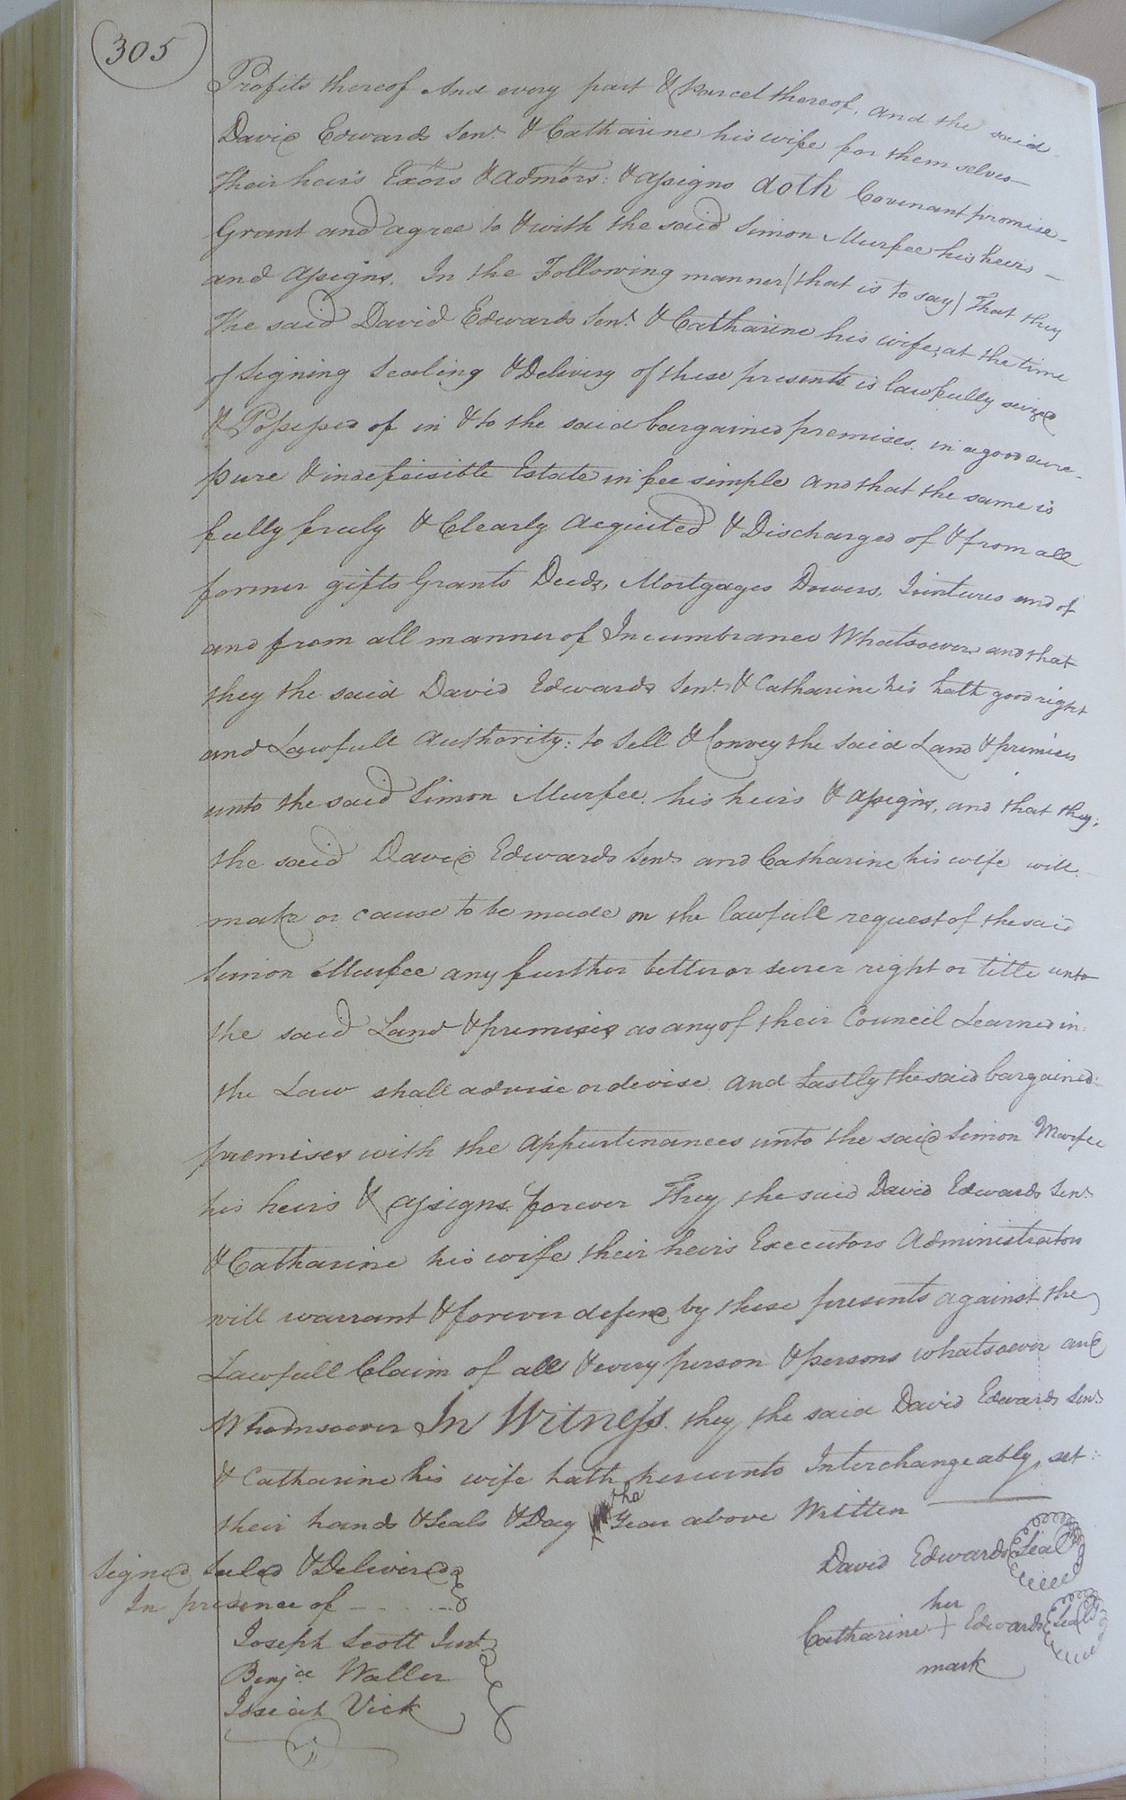 305
Profits thereof And every part & parcel thereof, and the said
David Edwards Senr. & Catharine his wife for them selves
Their heirs Exors & admors: & assigns doth Covenant promise
Grant and agree to & with the said Simon Murfee his heirs
and assigns. In the Following manner (that is to say) That they
the said David Edwards Senr. & Catharine his wife, at the time
of Signing Sealing & Delivery of these presents is lawfully seized
& Possessed of in & to the said bargained premises. in a good sure
pure & indefeisible Estate in fee simple and that the same is
fully fruly & Clearly acquited & Discharged of & from all
former gifts Grants Deeds, Mortgages Dowers, Jointures and of
and from all manner of Incumbrances Whatsoever and that
they the said David Edwards Senr. & Catharine his hath good right
and Lawfull authority: to Sell & Convey the said Land & premises
unto the said Simon Murfee. his heirs & assigns, and that they;
the said David Edwards Senr. and Catharine his wife will
make or cause to be made on the lawfull request of the said
Simon Murfee any further better or surer right or title unto
the said Land & premises as any of their Council Learned in
the Law shall advise or devise. and Lastly the said bargained
premises with the appurtenances unto the said Simon Murfee
his heirs & assigns forever They the said David Edwards Senr.
& Catharine his wife their heirs Executors Administrators
will warrant & forever defend by these presents against the
Lawfull Claim of all & every person & persons whatsoever and
Whomsoever In Witness. they the said David Edwards Senr.
& Catharine his wife hath hereunto Interchangeably set
their hands & Seals & Day the Year above Written
Signed Sealed & Delivered
In presence of
Joseph Scott Junr.
Benja Waller
Josiah Vick
David Edwards Seal
her
Catharine + Edwards Seal
mark